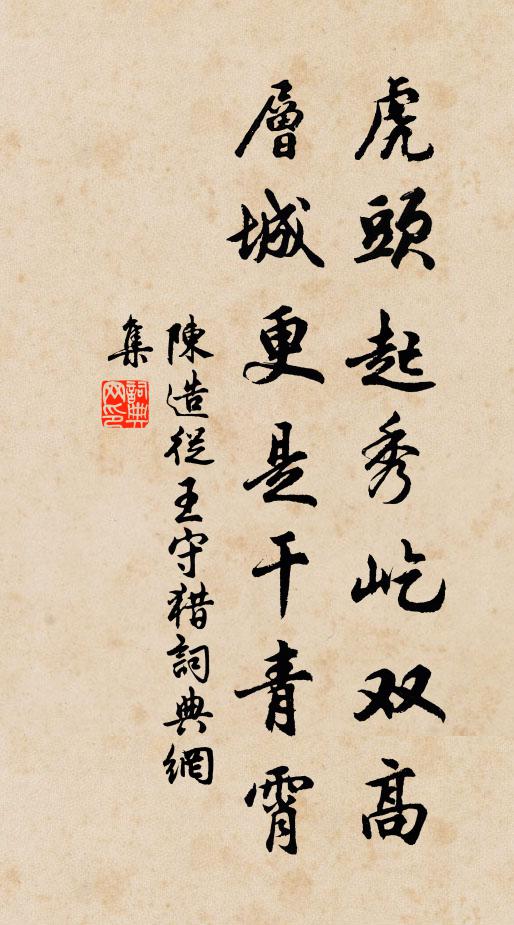 虎頭起秀屹双高
層城更是干青霄
陳造從王守猎詞典網
集
詞典
网印